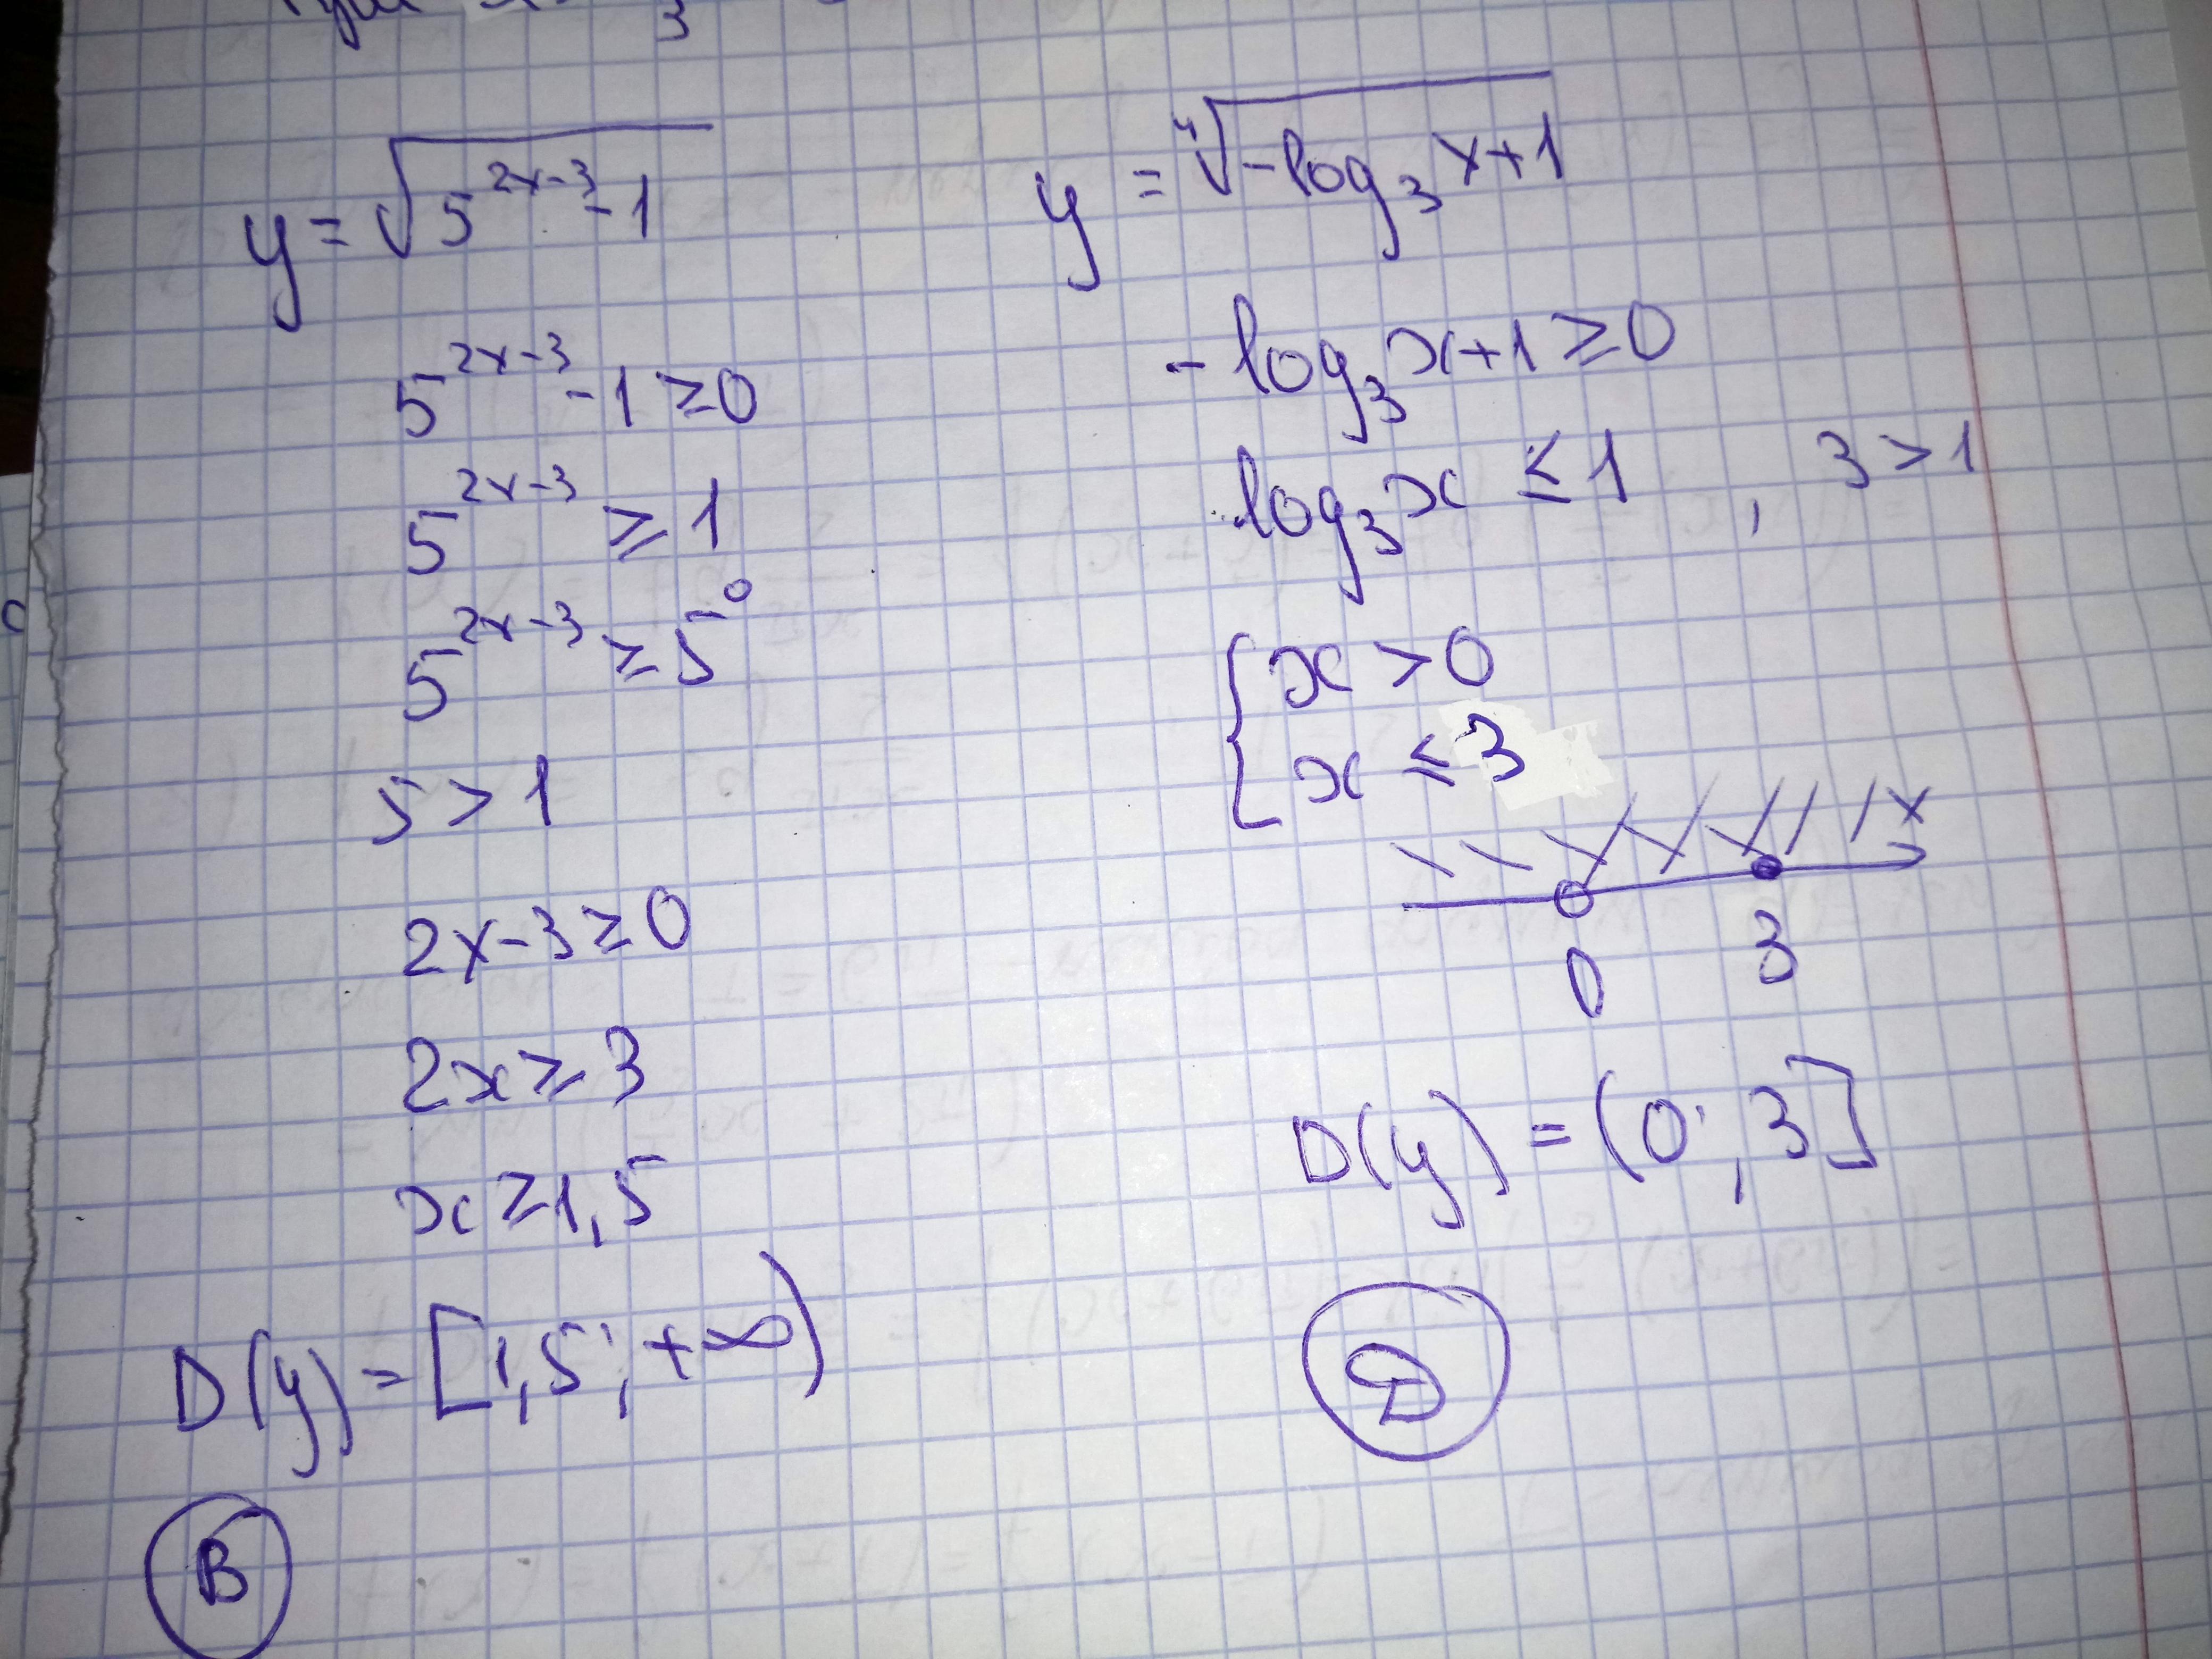 3
y = √(5^(2x-3) - 1)
5^(2x-3) - 1 ≥ 0
5^(2x-3) ≥ 1
5^(2x-3) ≥ 5^0
5 > 1
2x-3 ≥ 0
2x ≥ 3
x ≥ 1,5
D(y) = [1,5; +∞)
B
y = ∜(-log₃ x+1)
-log₃ x+1 ≥ 0
log₃ x ≤ 1 , 3 > 1
{ x > 0
x ≤ 3
x
0 3
D(y) = (0; 3]
D